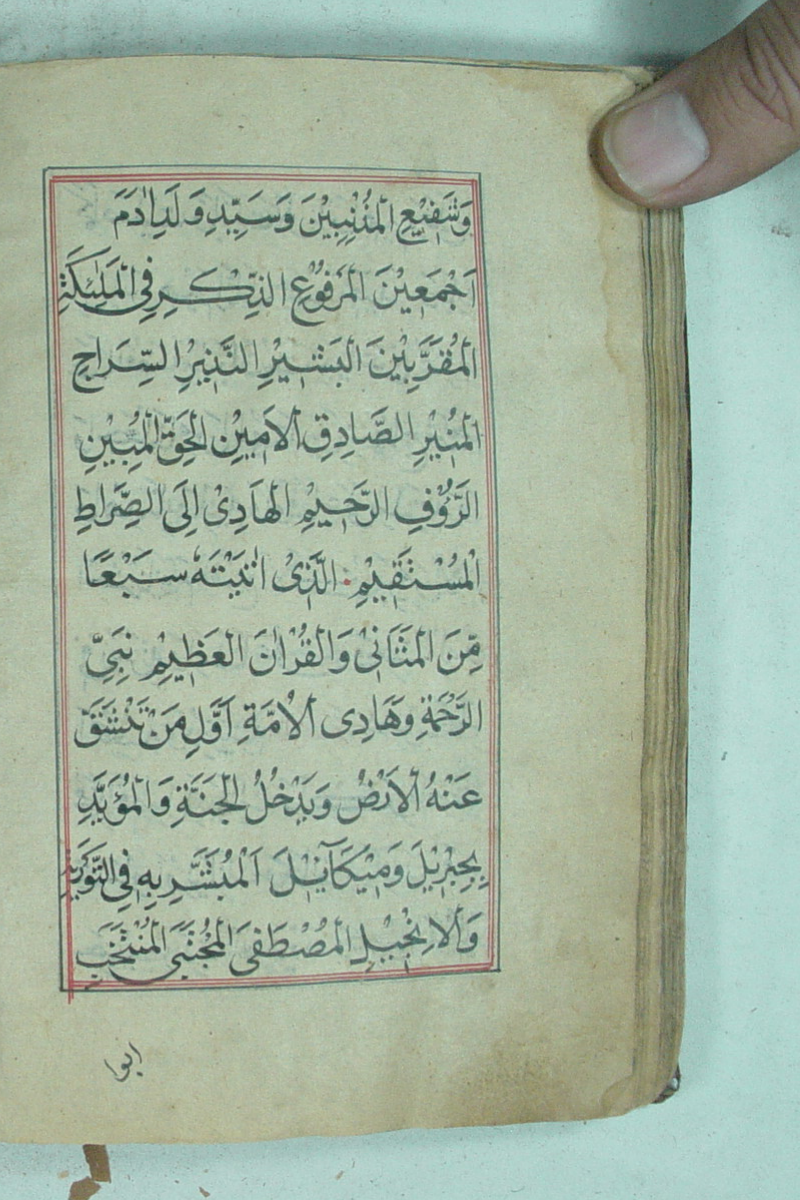 وَشَفِيْعِ الْمُذْنِبِيْنَ وَسَيِّدِ وَلَدِ اٰدَمَ
اَجْمَعِيْنَ الْمَرْفُوْعِ الذِّكْرِ فِى الْمَلٰئِكَةِ
الْمُقَرَّبِيْنَ الْبَشِيْرِ النَّذِيْرِ السِّرَاجِ
الْمُنِيْرِ الصَّادِقِ الْاَمِيْنِ الْحَقِّ الْمُبِيْنِ
الرَّؤُفِ الرَّحِيْمِ الْهَادِىْ اِلَى الصِّرَاطِ
الْمُسْتَقِيْمِ الَّذِىْ اٰتَيْتَهٗ سَبْعًا
مِّنَ الْمَثَانِىْ وَالْقُرْاٰنَ الْعَظِيْمِ نَبِىِّ
الرَّحْمَةِ وَهَادِى الْاُمَّةِ اَوَّلِ مَنْ تَنْشَقُّ
عَنْهُ الْاَرْضُ وَيَدْخُلُ الْجَنَّةِ وَالْمُؤَيَّدِ
بِجِبْرِيْلَ وَمِيْكَآئِيْلَ اَلْمُبَشَّرِ بِهٖ فِى التَّوْرٰيةِ
وَالْاِنْجِيْلِ الْمُصْطَفٰى الْمُجْتَبٰى الْمُنْتَخَبِ
ابوا